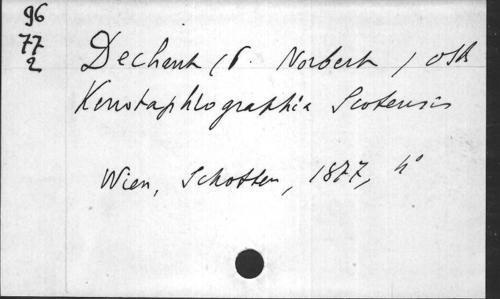 96
77
2
Dechant (P. Norbert) OSB
Kenotaphiographia Scotensis
Wien, Schotten, 1877, 4°